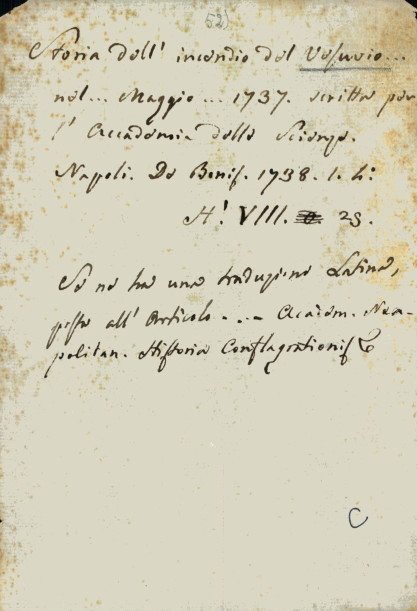 52)
Storia dell' incendio del Vesuvio...
nel... Maggio... 1737. scritta per
l' Accademia delle Scienze.
Napoli. De Bonis. 1738. 1. h:
H! VIII. 23.
Se ne ha una traduzione Latina,
posta all' Articolo .... Academ. Nea-
politan. Historia Conflagrationis
C